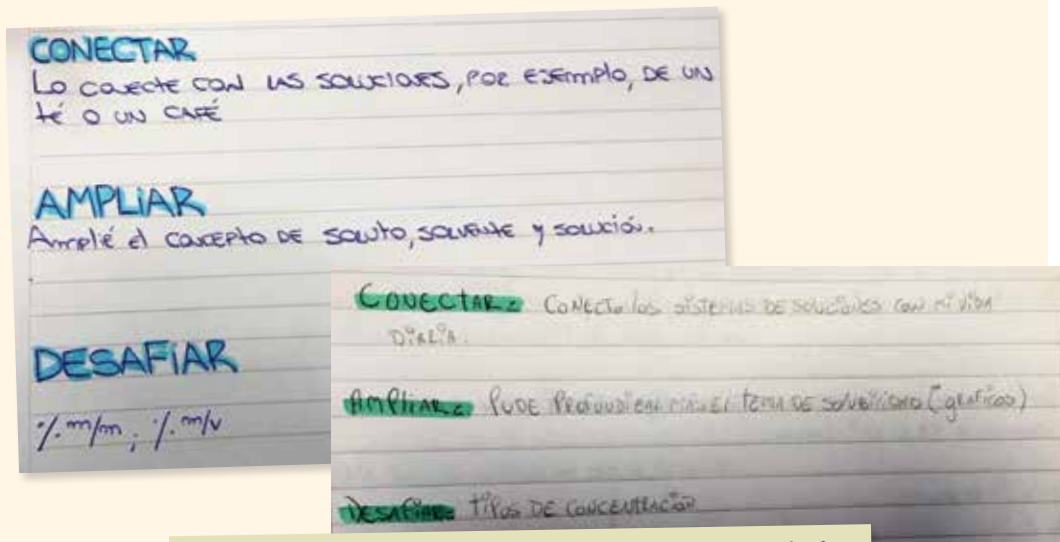 CONECTAR
Lo conecte con las soluciones, por ejemplo, de un
té o un café
AMPLIAR
Amplé el concepto de soluto, solvente y solución.
DESAFIAR
% m/m ; % m/v
Conectar: Conecto los sistemas de soluciones con mi vida
diaria.
Ampliar: Pude profundizar más el tema de solubilidad (graficos)
Desafiar: tipos de concentración